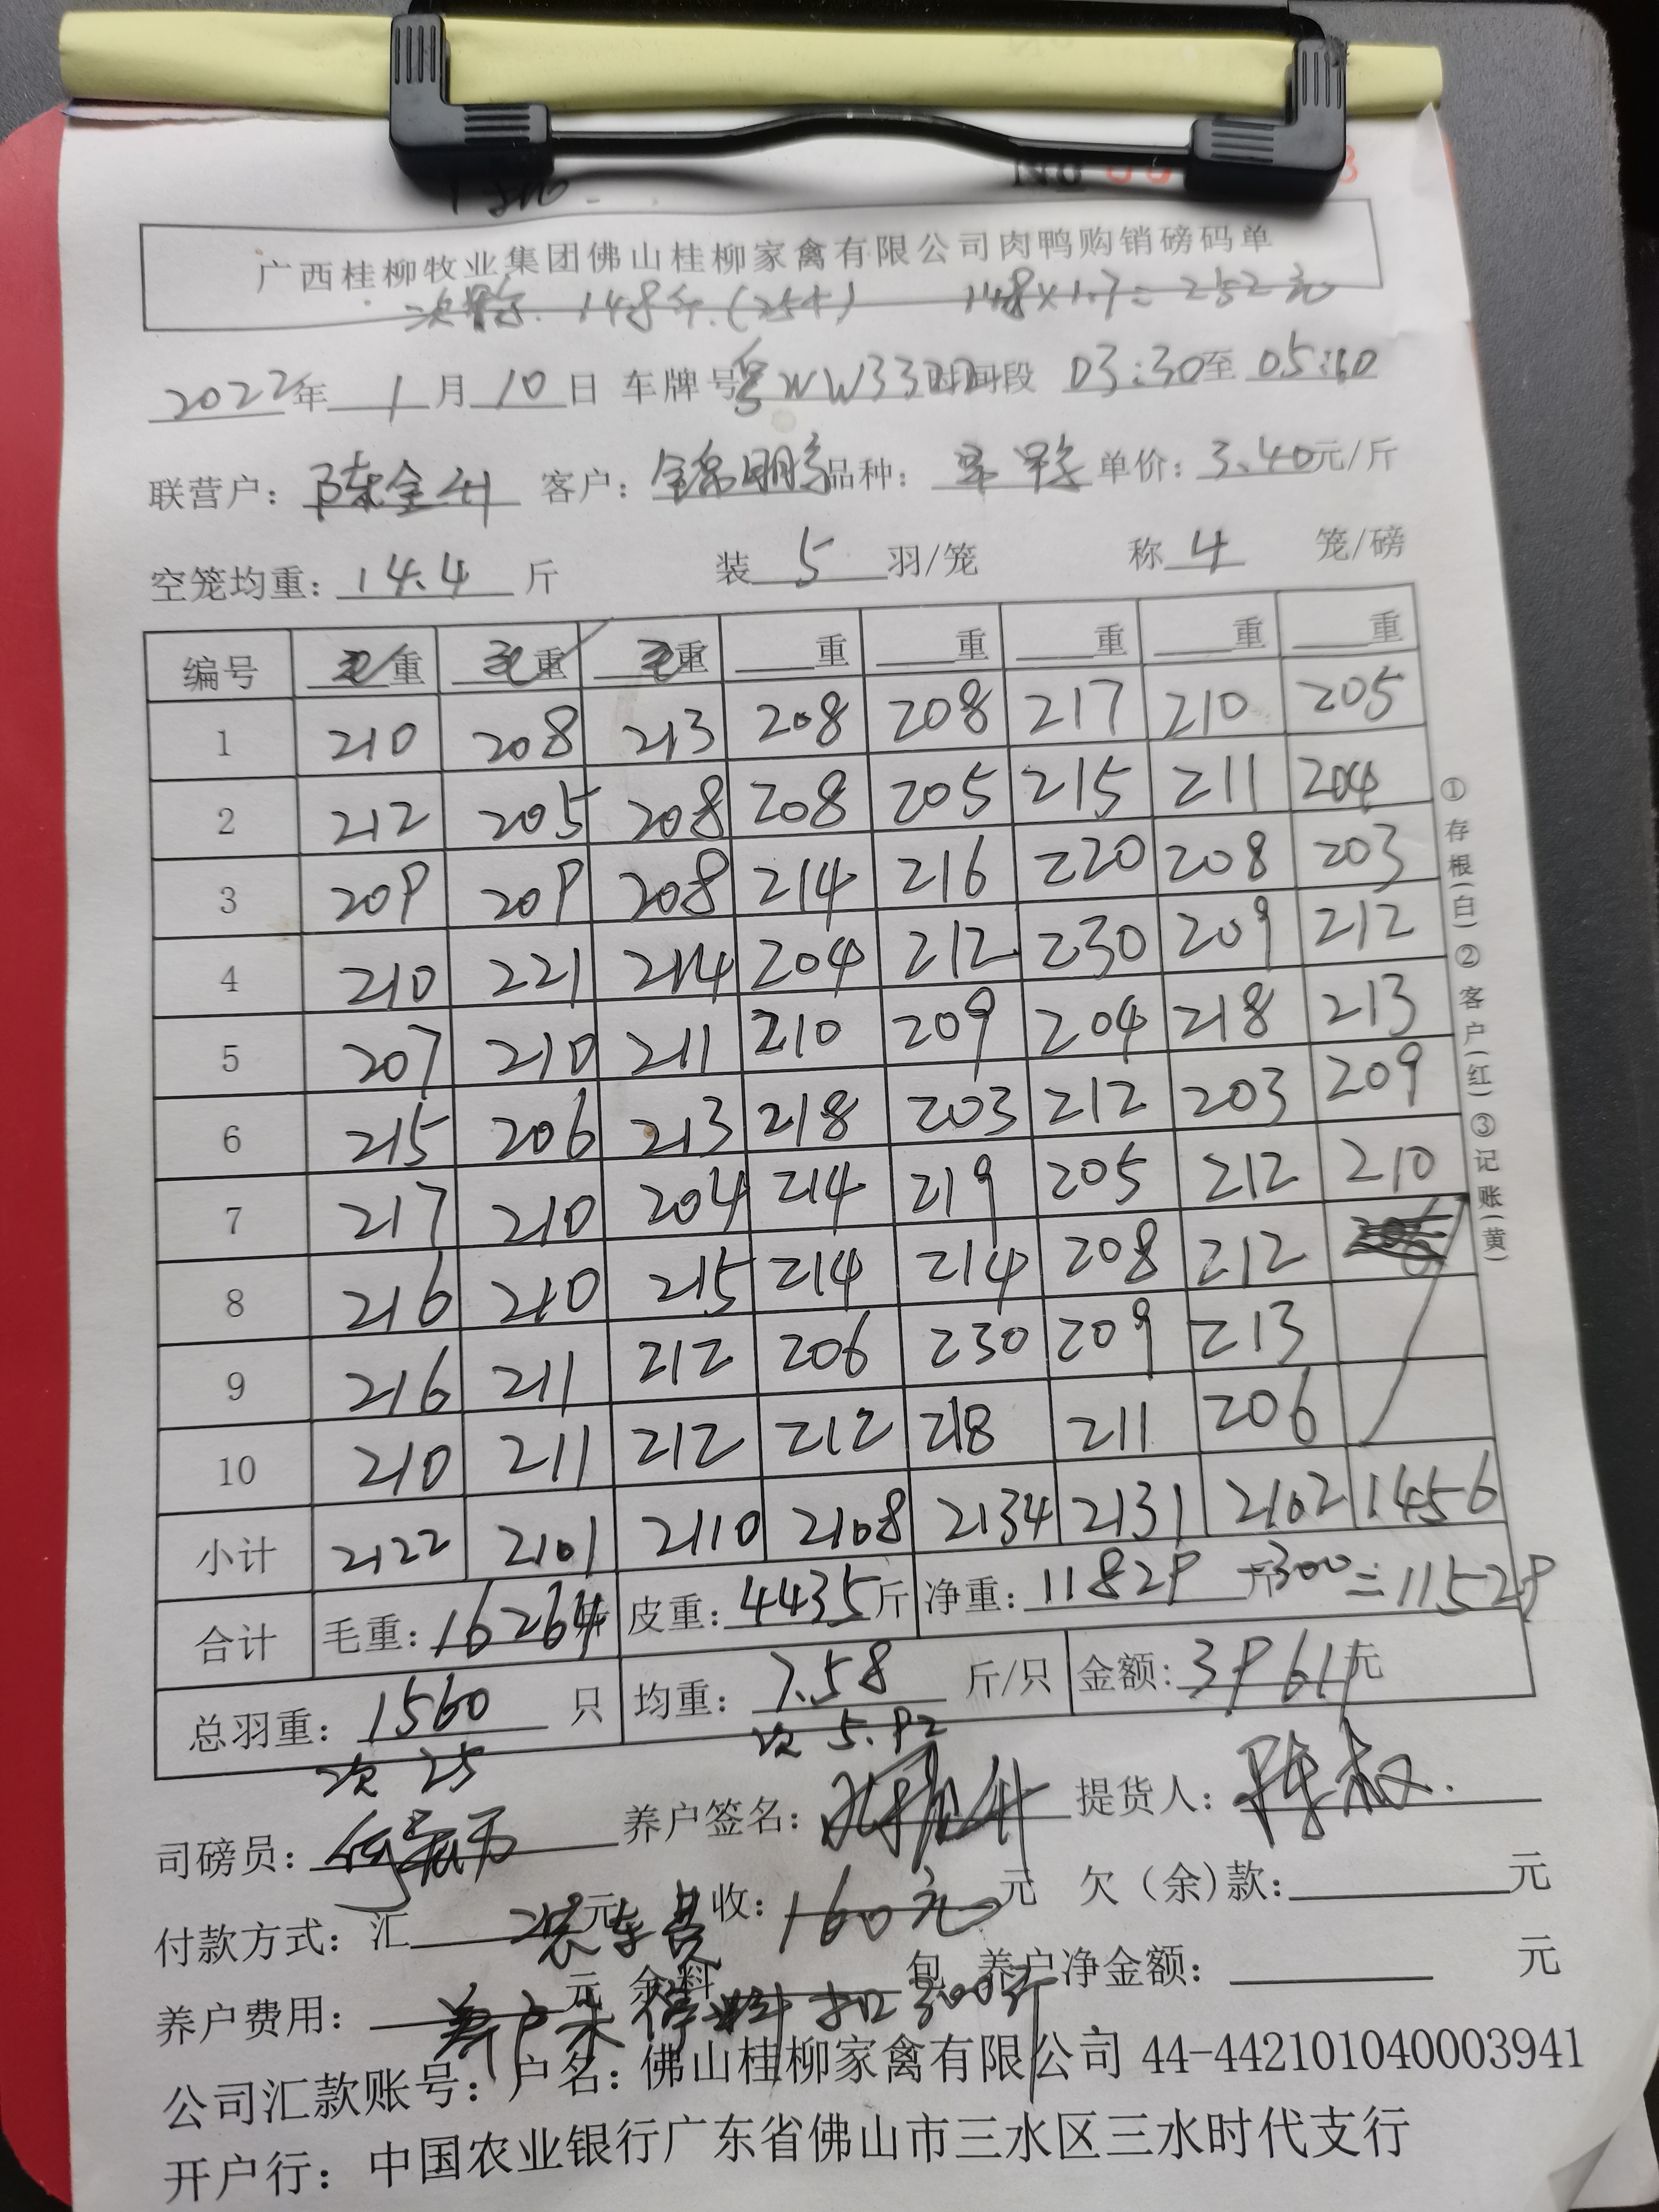 No
广西桂柳牧业集团佛山桂柳家禽有限公司肉鸭购销磅码单
次鸭 148斤.(25个) 148×1.7=252元
2022年 1月10日 车牌号粤WW33 时间段 03:30至05:10
联营户: 陈金 客户: 锦明 品种: 单价: 3.40元/斤
空笼均重: 14.4 斤 装 5 羽/笼 称 4 笼/磅
编号 毛重 毛重 毛重 重 重 重 重 重
1 210 208 213 208 208 217 210 205
2 212 205 208 208 205 215 211 204
3 209 209 208 214 216 220 208 203
4 210 221 214 204 212 230 209 212
5 207 210 211 210 209 204 218 213
6 215 206 213 218 203 212 203 209
7 217 210 204 214 219 205 212 210
8 216 210 215 214 214 208 212
9 216 211 212 206 230 209 213
10 210 211 212 212 218 211 206
小计 2122 2101 2110 2108 2134 2131 2102 1456
合计 毛重: 16264斤 皮重: 4435斤 净重: 11829斤-300=11529
总羽重: 1560 只 均重: 7.58 斤/只 金额: 39619元
次 25 次 5.92
司磅员: 养户签名: 提货人: 陈叔.
付款方式: 汇 元 装车费 收: 160元 元 欠(余)款: 元
养户费用: 元 余料 包 养户净金额: 元
养户未停料扣300斤
公司汇款账号: 户名: 佛山桂柳家禽有限公司 44-442101040003941
开户行: 中国农业银行广东省佛山市三水区三水时代支行
①存根(白)②客户(红)③记账(黄)